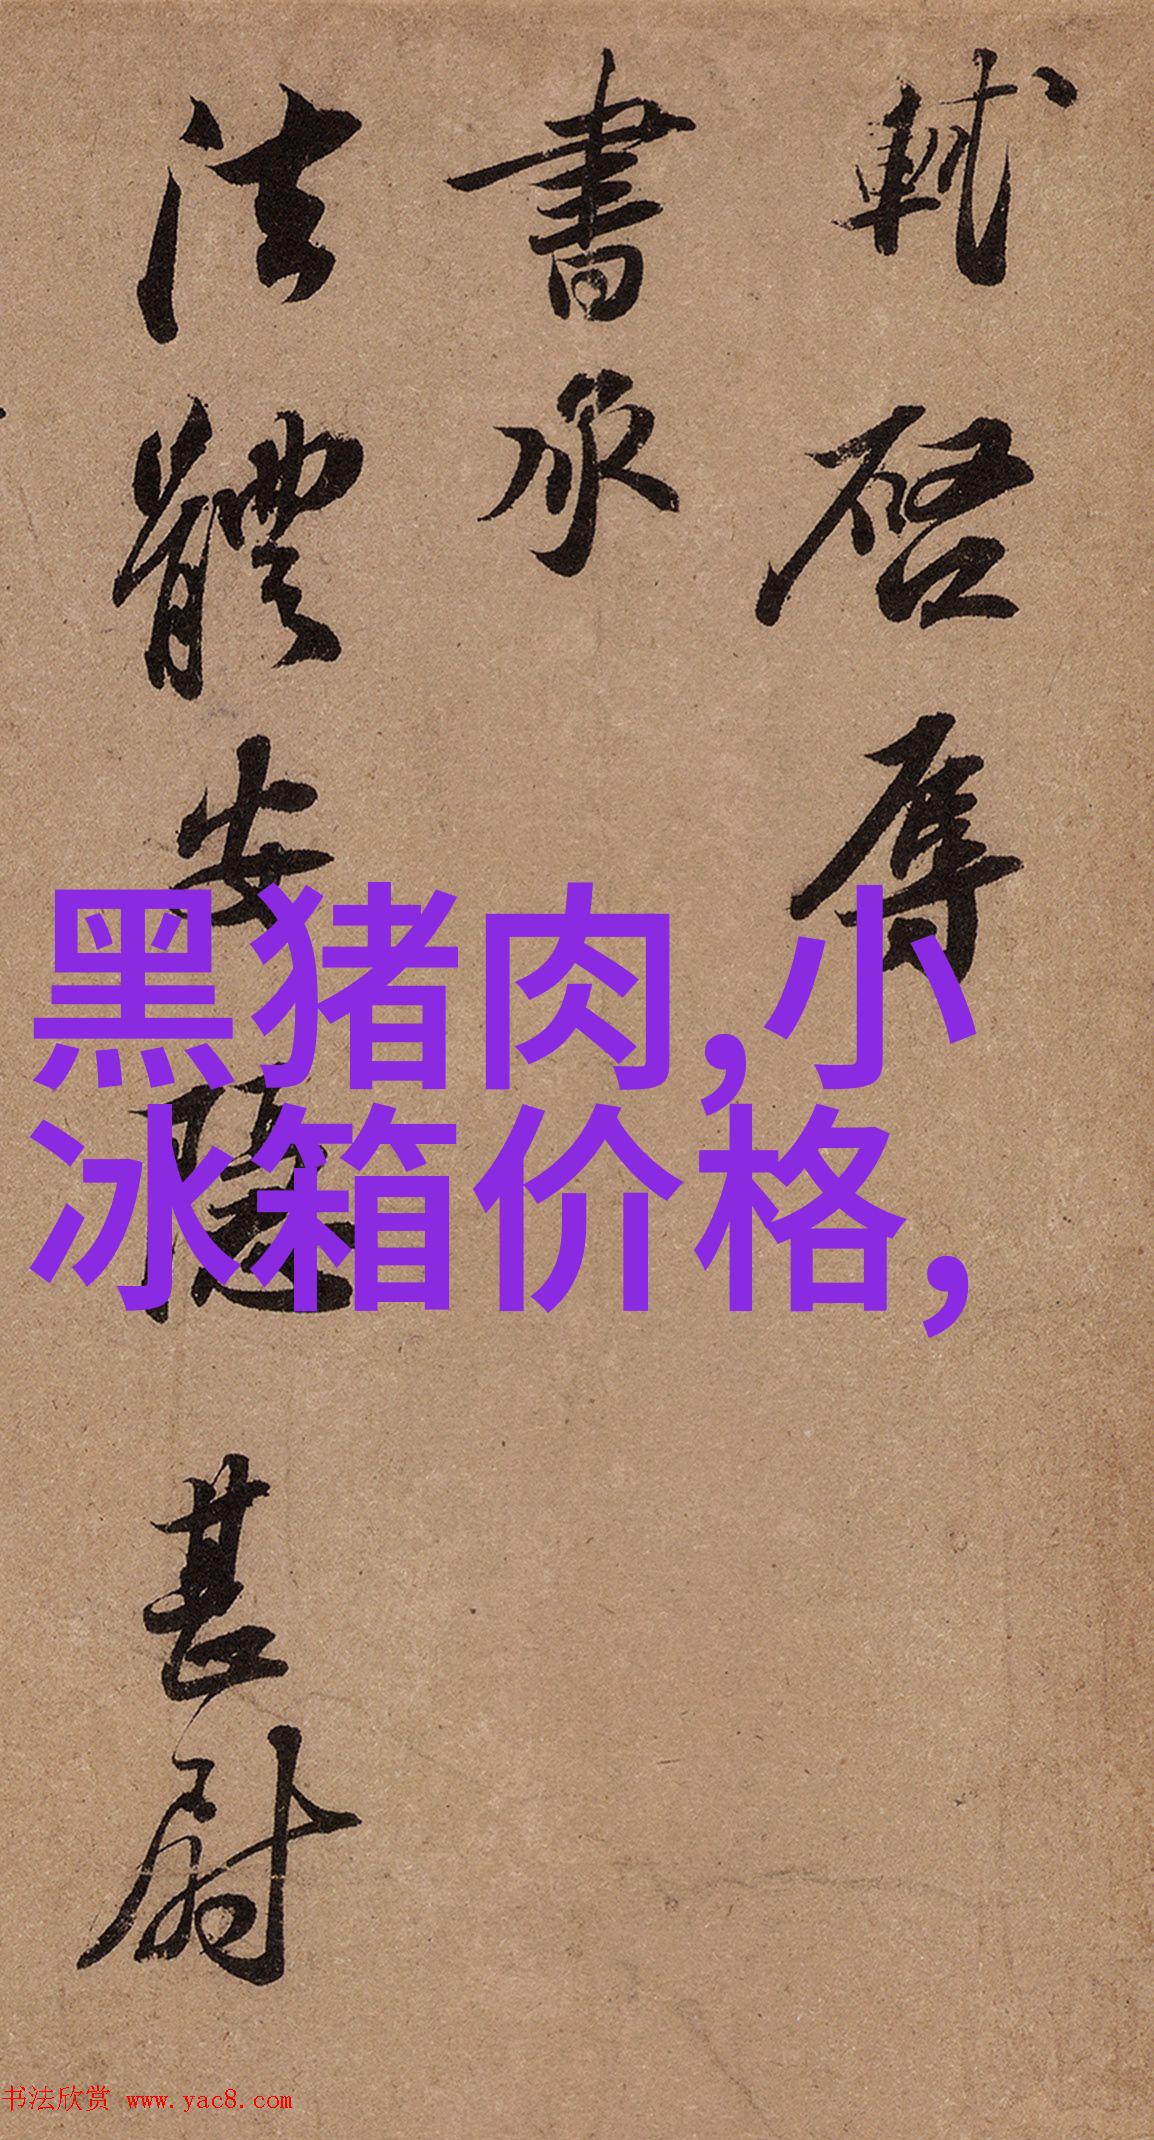 軾啓辱
書承
法體安隱甚尉
黑猪肉,小
冰箱价格,
书法欣赏 www.yac8.com